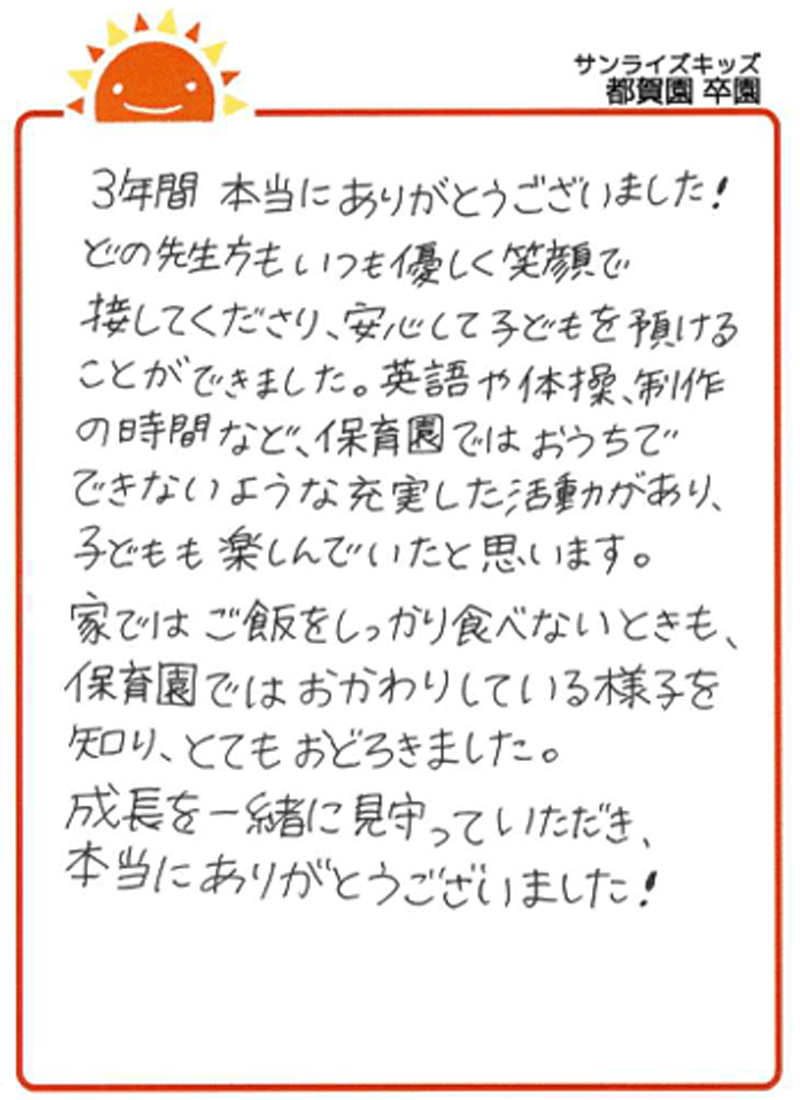 サンライズキッズ
都賀園 卒園
3年間 本当にありがとうございました!
どの先生方もいつも優しく笑顔で
接してくださり、安心して子どもを預ける
ことができました。英語や体操、制作
の時間など、保育園ではおうちで
できないような充実した活動があり、
子どもも楽しんでいたと思います。
家ではご飯をしっかり食べないときも、
保育園ではおかわりしている様子を
知り、とてもおどろきました。
成長を一緒に見守っていただき、
本当にありがとうございました!